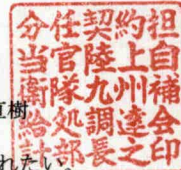 分任契約担
当官陸上自
衛隊九州補
給処調達会
計部長之印
樹
れたい。